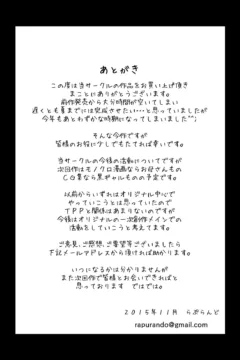 あとがき
この度は当サークルの作品をお買い上げ頂き
まことにありがとうございます。
前作発売から大分時間が空いてしまい
遅くとも夏までには完成させたい…と思っていましたが
今年もあとわずかな時期になってしまいました^^;
そんな今作ですが
皆様のお役に少しでもたてれば幸いです。
当サークルの今後の活動についてですが
次回作はモノクロ漫画ならお母さんもの
CG集なら黒ギャルものの予定です。
以前からいずれはオリジナル中心で
やっていこうとは思っていたので
TPPと関係はあまりないのですが
今後はオリジナルの一次創作メインでの
活動をしていこうと考えてます。
ご意見、ご感想、ご要望等ございましたら
下記メールアドレスから頂けると嬉しいです。
いつになるかは分かりませんが
また次回作で皆様とお会いできればと
思っております ではでは。
2015年11月 らぷらんど
rapurando@gmail.com